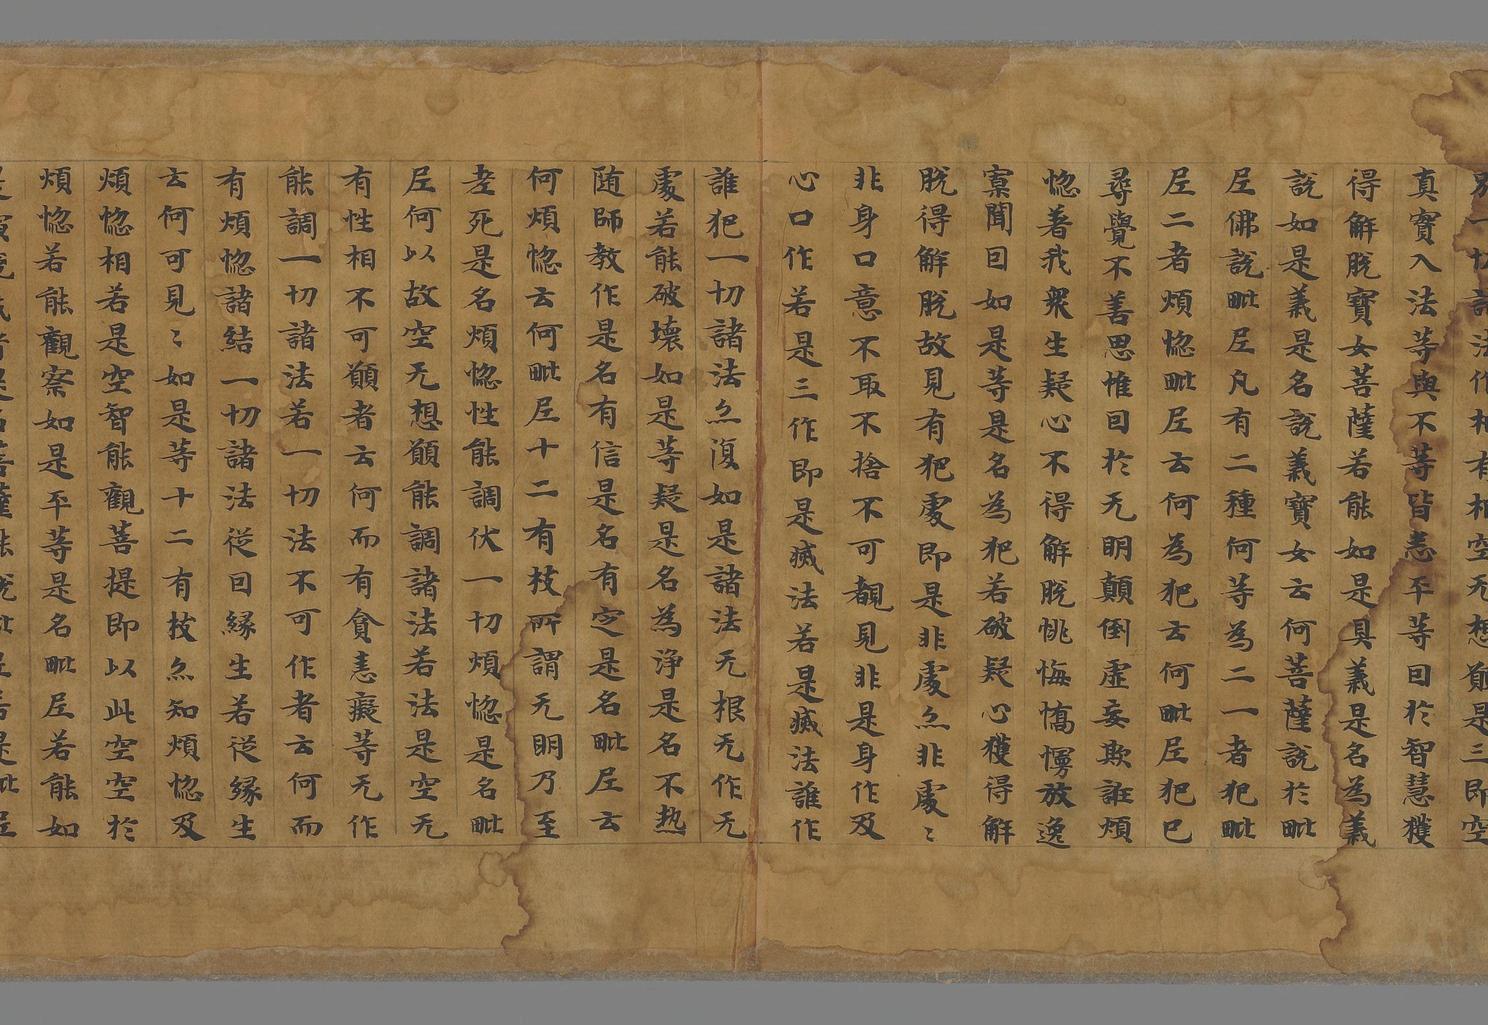 別一切諸法作相有相空无想願是三即空
真實入法等與不等皆悉平等回於智慧獲
得解脫寶女菩薩若能如是具義是名為義
說如是義是名說義寶女云何菩薩說於毗
尼佛說毗尼凡有二種何等為二一者犯毗
尼二者煩惚毗尼云何為犯云何毗尼犯巳
尋覺不善思惟回於无明顛倒虛妄欺誑煩
惚著我衆生疑心不得解脫恌悔憍慢放逸
寡聞回如是等是名為犯若破疑心獲得解
脫得解脫故見有犯處即是非處〻非處〻
非身口意不取不捨不可覩見非是身作及
心口作若是三作即是滅法若是滅法誰作
誰犯一切諸法亦復如是諸法无根无作无
處若能破壞如是等疑是名為淨是名不熱
随師教作是名有信是名有定是名毗尼云
何煩惚云何毗尼十二有枝所謂无明乃至
老死是名煩惚性能調伏一切煩惚是名毗
尼何以故空无想願能調諸法若法是空无
有性相不可願者云何而有貪恚癡等无作
能調一切諸法若一切法不可作者云何而
有煩惚諸結一切諸法從回緣生若從緣生
云何可見〻如是等十二有枝亦知煩惚及
煩惚相若是空智能觀菩提即以此空空於
煩惚若能觀察如是平等是名毗尼若能如